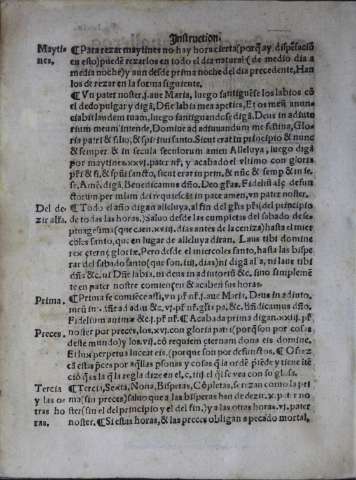 Instruction.
Mayti- ¶ Para rezar maytines no hay hora cierta (porq̃ ay dispẽsaciõ
nes. en esto) puedẽ rezarlos en todo el dia natural (de medio dia a
media noche) y aun desde prima noche del dia precedente, Han
los de rezar en la forma siguiente.
¶ Vn pater noster, ɫ aue Maria, luego sanctiguẽse los labios cõ
el dedo pulgar y digã, Dñe labia mea aperies, Et os meũ anun
ciabit laudem tuam, luego sanctiguandose digã. Deus in adiuto
rium meum intende, Domine ad adiuuandum me festina, Glo
ria patri & filio, & spiritui sancto. Sicut erat in principio & nunc
& semper & in secula seculorum amen Alleluya, luego digã
por maytines xxvj. pater nr̃. y acabado el vltimo con gloria
pr̃i & fi, & spũi sancto, sicut erat in prin. & nũc & semp & in se-
se. Amẽ. digã, Benedicamus dño. Deo gr̃as. Fideliũ aĩe defun
ctorum per miam dei requiescãt in pace amen, vn pater noster.
Del de- ¶ Todo el año digan aleluya, al fin del gl'ia pr̃i (del principio
zir alla. de todas las horas) Saluo desde las completas del sabado dese-
ptuagesima (que caen .xxiij. dias antes de la ceniza) hasta el mier
coles santo, que en lugar de alleluya diran. Laus tibi domine
rex eterne glorie, Pero desde el miercoles santo, hasta las bispe
rar del sabado santo (que son .iiij. dias) ni digã al'a, ni laus tibi
dñe &c. ni Dñe labia, ni deus in adiutoriũ &c. sino simplemẽ
te en pater noster comiencen & acaben sus horas.
Prima. ¶ Prima se comiẽce assi, vn pr̃ nr̃. ɫ aue Maria. Deus in adiuto.
meũ in. dñe ad adiu &c. vj. pr̃ nr̃. gl'ia pa. &c. bñdicamus dño.
Fidelium anime &c ɫ pr̃. nr̃. ¶ Acabada prima digan .xxij. pr̃.
Preces. noster por preces, los .xvj. con gloria patri (porq̃ son por cosas
deste mundo) y los .vij. cõ requiem eternam dona eis domine.
Et lux perpetua luceat eis, (por que son por defunctos. ¶ Ofrez
cã estas p̃ces por aq̃llas psonas y cosas q̃ la ordẽ p̃tẽde y tiene itẽ
ciõ q̃as la q̃ la regla dize en el. c. iiij. el q̃ se vea con su glosa.
Tercia ¶ Tercia, Sexta, Nona, Bisperas, Cõpletas, se rezan como la pri
y las o- ma (sin preces) saluo que a las bisperas han de dezir .x. pater no
tras ho ster (sin el del principio y el del fin,) y a las otras horas .vj. pater
ras. noster. ¶ Si estas horas, & las preces obligan a pecado mortal,